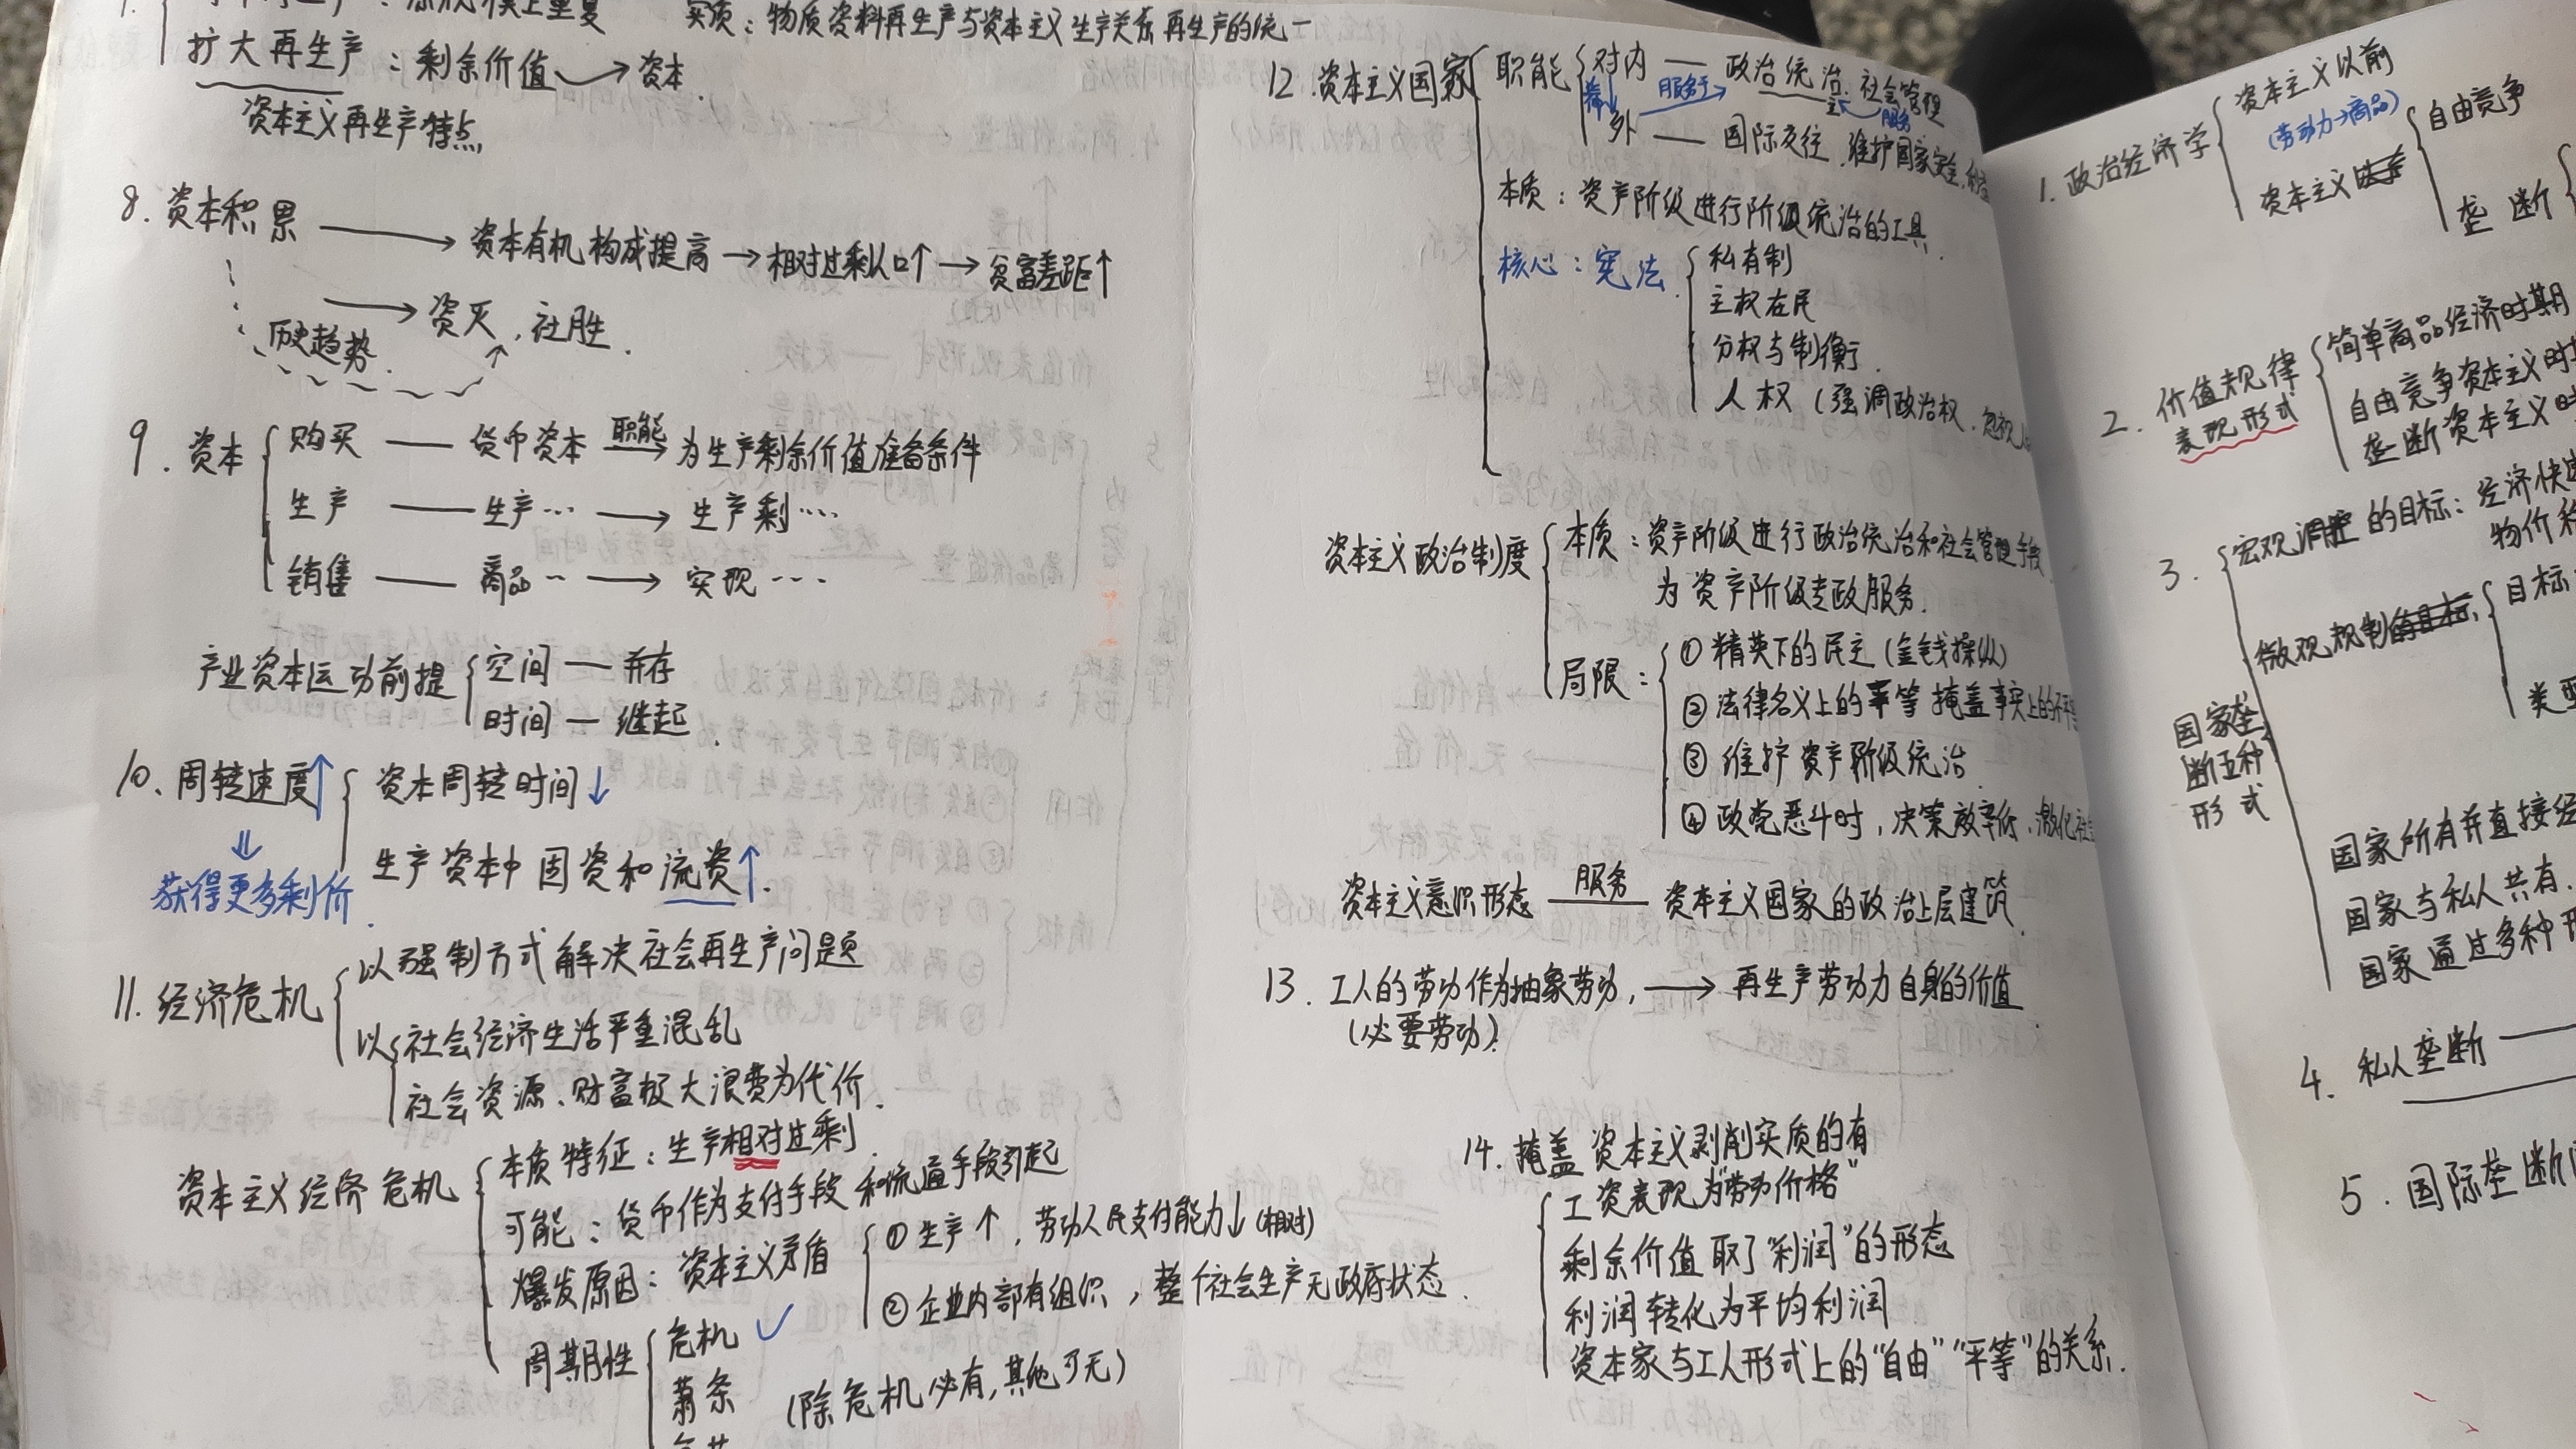 扩大再生产：剩余价值→资本.
实质：物质资料再生产与资本主义生产关系再生产的统一
资本主义再生产特点
8. 资本积累 → 资本有机构成提高 → 相对过剩人口↑ → 贫富差距↑
→ 资灭，社胜.
历史趋势.
9. 资本
购买 — 货币资本 职能→ 为生产剩余价值准备条件
生产 — 生产… → 生产剩…
销售 — 商品… → 实现…
产业资本运动前提
空间 — 并存
时间 — 继起.
10、周转速度↑
资本周转时间↓
生产资本中固资和流资↑.
⇓
获得更多剩价.
11. 经济危机
以强制方式解决社会再生产问题
以
社会经济生活严重混乱
社会资源、财富极大浪费为代价.
资本主义经济危机
本质特征：生产相对过剩.
可能：货币作为支付手段和流通手段引起
爆发原因：资本主义矛盾
①生产↑，劳动人民支付能力↓(相对)
②企业内部有组织，整个社会生产无政府状态.
周期性
危机 ✓
萧条
(除危机必有,其他可无)
12. 资本主义国家
职能
对内 — 政治统治. 社会管理
服务于
服务
外 — 国际交往、维护国家安全,
本质：资产阶级进行阶级统治的工具.
核心：宪法.
私有制
主权在民
分权与制衡.
人权 (强调政治权、忽视
资本主义政治制度
本质：资产阶级进行政治统治和社会管理手段
为资产阶级专政服务.
局限：
①精英下的民主(金钱操纵)
②法律名义上的平等掩盖事实上的不平等
③维护资产阶级统治
④政党恶斗时，决策效率低、激化社
资本主义意识形态 服务— 资本主义国家的政治上层建筑.
13. 工人的劳动作为抽象劳动，→ 再生产劳动力自身的价值.
(必要劳动).
14. 掩盖资本主义剥削实质的有
工资表现为"劳动价格"
剩余价值取了"利润"的形态
利润转化为平均利润
资本家与工人形式上的"自由""平等"的关系.
1. 政治经济学
资本主义以前
(劳动力→商品)
资本主义
自由竞争
垄断
2. 价值规律
表现形式
简单商品经济时期
自由竞争资本主义时
垄断资本主义时
3.
宏观调控的目标：经济快
物价稳
微观规制
目标
类型
国家垄
断五种
形式
国家所有并直接经
国家与私人共有.
国家通过多种形
4. 私人垄断 —
5. 国际垄断